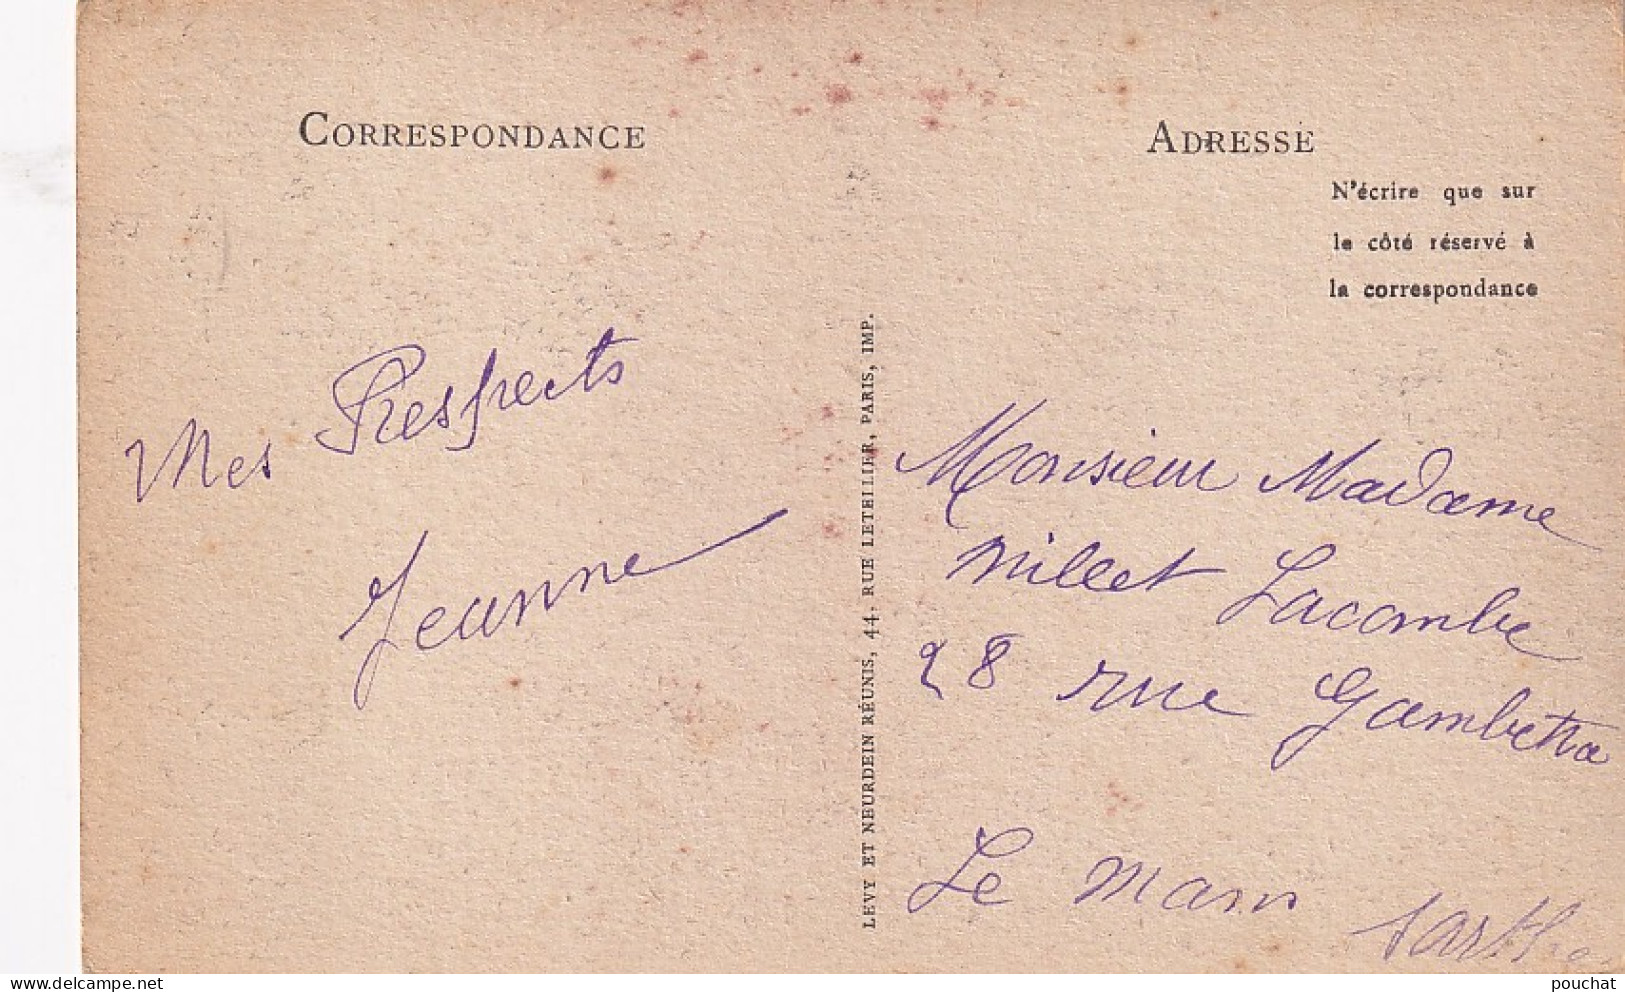 CORRESPONDANCE
ADRESSE
N'écrire que sur
le côté réservé à
la correspondance
Mes Respects
Jeanne
LEVY ET NEURDEIN RÉUNIS, 44, RUE LETELLIER, PARIS, IMP.
Monsieur Madame
Millet Lacombe
28 rue Gambetta
Le Mans
Sarthe
delcampe.net
pouchat